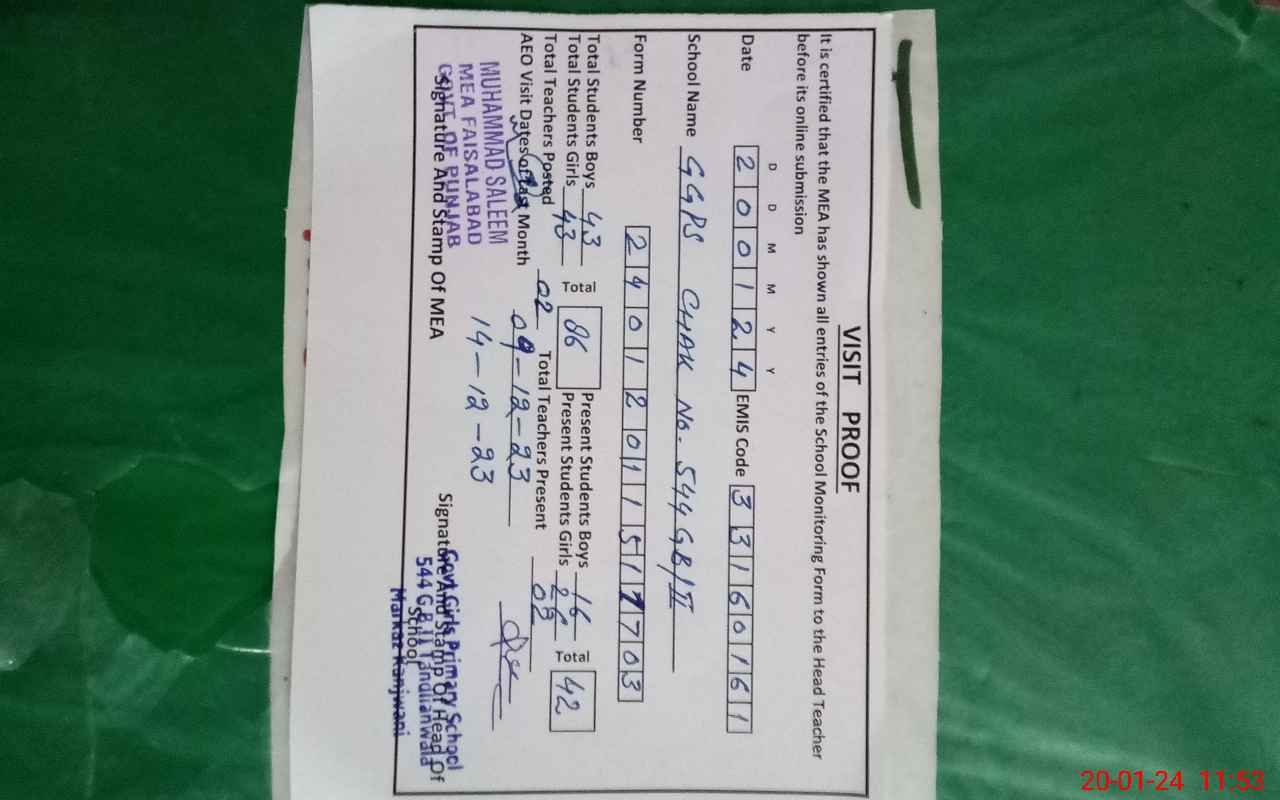 VISIT PROOF
It is certified that the MEA has shown all entries of the School Monitoring Form to the Head Teacher
before its online submission
D D M M Y Y
Date 2 0 0 1 2 4 EMIS Code 3 3 1 6 0 1 6 1
School Name GGPS CHAK No. 544 GB/II
Form Number 2 4 0 1 2 0 1 1 5 1 7 7 0 3
Total Students Boys 43 Total 86 Present Students Boys 16 Total 42
Total Students Girls 43 Present Students Girls
Total Teachers Posted 02 Total Teachers Present 02
AEO Visit Dates of Last Month 09-12-23
14-12-23
MUHAMMAD SALEEM
MEA FAISALABAD
GOVT. OF PUNJAB
Signature And Stamp Of MEA
Signature And Stamp Of Head Of
School
Govt Girls Primary School
544 G.B II Tandlianwala
Markaz Kanjwani
20-01-24 11:53